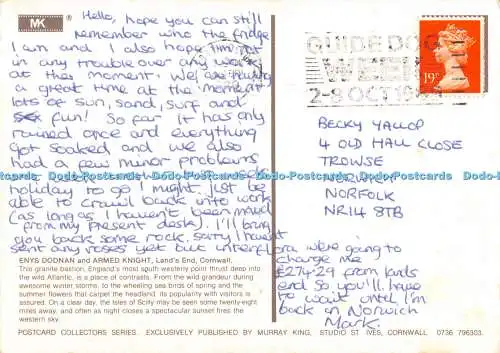 MK
Hello, hope you can still
remember who the fridge
I am and I also hope I'm not
in any trouble over any work
at this moment. We are having
a great time at the moment
lots of sun, sand, surf and
fun! So far it has only
rained once and everything
got soaked and we also
had a few minor problems
holiday to go I might just be
able to crawl back into work
(as long as I haven't been moved
from my present desk). I'll bring
you back some rock. Sorry I haven't
sent any roses yet but interflora were going to
charge me
£274.29 from lands
end so you'll have
to wait until I'm
back in Norwich
Mark.
GUIDE DOG
WEEK
2-8 OCT
19p
BECKY YALLOP
4 OLD HALL CLOSE
TROWSE
NORFOLK
NR14 8TB
Dodo-Postcards.com Dodo-Postcards.com Dodo-Postcards.com
ENYS DODNAN and ARMED KNIGHT, Land's End, Cornwall.
This granite bastion, England's most south westerly point thrust deep into
the wild Atlantic, is a place of contrasts. From the wild grandeur during
awesome winter storms, to the wheeling sea birds of spring and the
summer flowers that carpet the headland. its popularity with visitors is
assured. On a clear day, the Isles of Scilly may be seen some twenty-eight
miles away, and often at night closes a spectacular sunset fires the
western sky.
POSTCARD COLLECTORS SERIES. EXCLUSIVELY PUBLISHED BY MURRAY KING, STUDIO ST IVES, CORNWALL. 0736 796303.